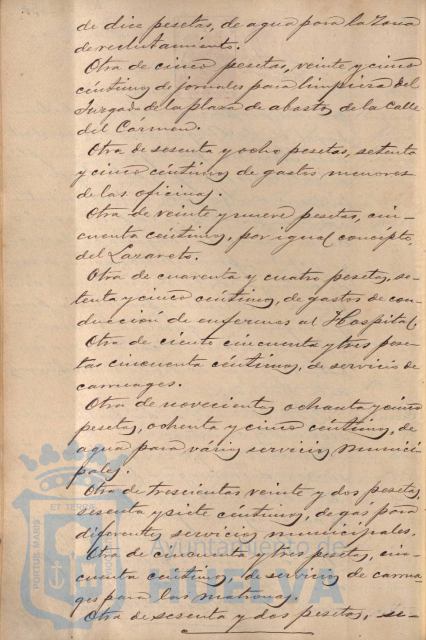 de diez pesetas, de agua para la Zona
de reclutamiento.
Otra de cinco pesetas, veinte y cinco
céntimos de jornales para limpieza del
Juzgado de la plaza de abastos, de la Calle
del Cármen.
Otra de sesenta y ocho pesetas, setenta
y cinco céntimos, de gastos menores
de las oficinas.
Otra de veinte y nueve pesetas, cin-
cuenta céntimos, por igual concepto,
del Lazareto.
Otra de cuarenta y cuatro pesetas, se-
tenta y cinco céntimos, de gastos de con-
ducción de enfermos al Hospital.
Otra de ciento cincuenta y tres pese-
tas cincuenta céntimos, de servicio de
carruages.
Otra de novecientas ochenta y cinco
pesetas, ochenta y cinco céntimos, de
agua para vários servicios munici-
pales.
Otra de trescientas veinte y dos pesetas,
sesenta y siete céntimos, de gas para
diferentes servicios municipales.
Otra de cincuenta y tres pesetas, cin-
cuenta céntimos, de servicio de carrua-
ges para las matronas.
Otra de sesenta y dos pesetas, se-
ET TERRE
PORTUS MARIS
Ayuntamiento de
HUELVA